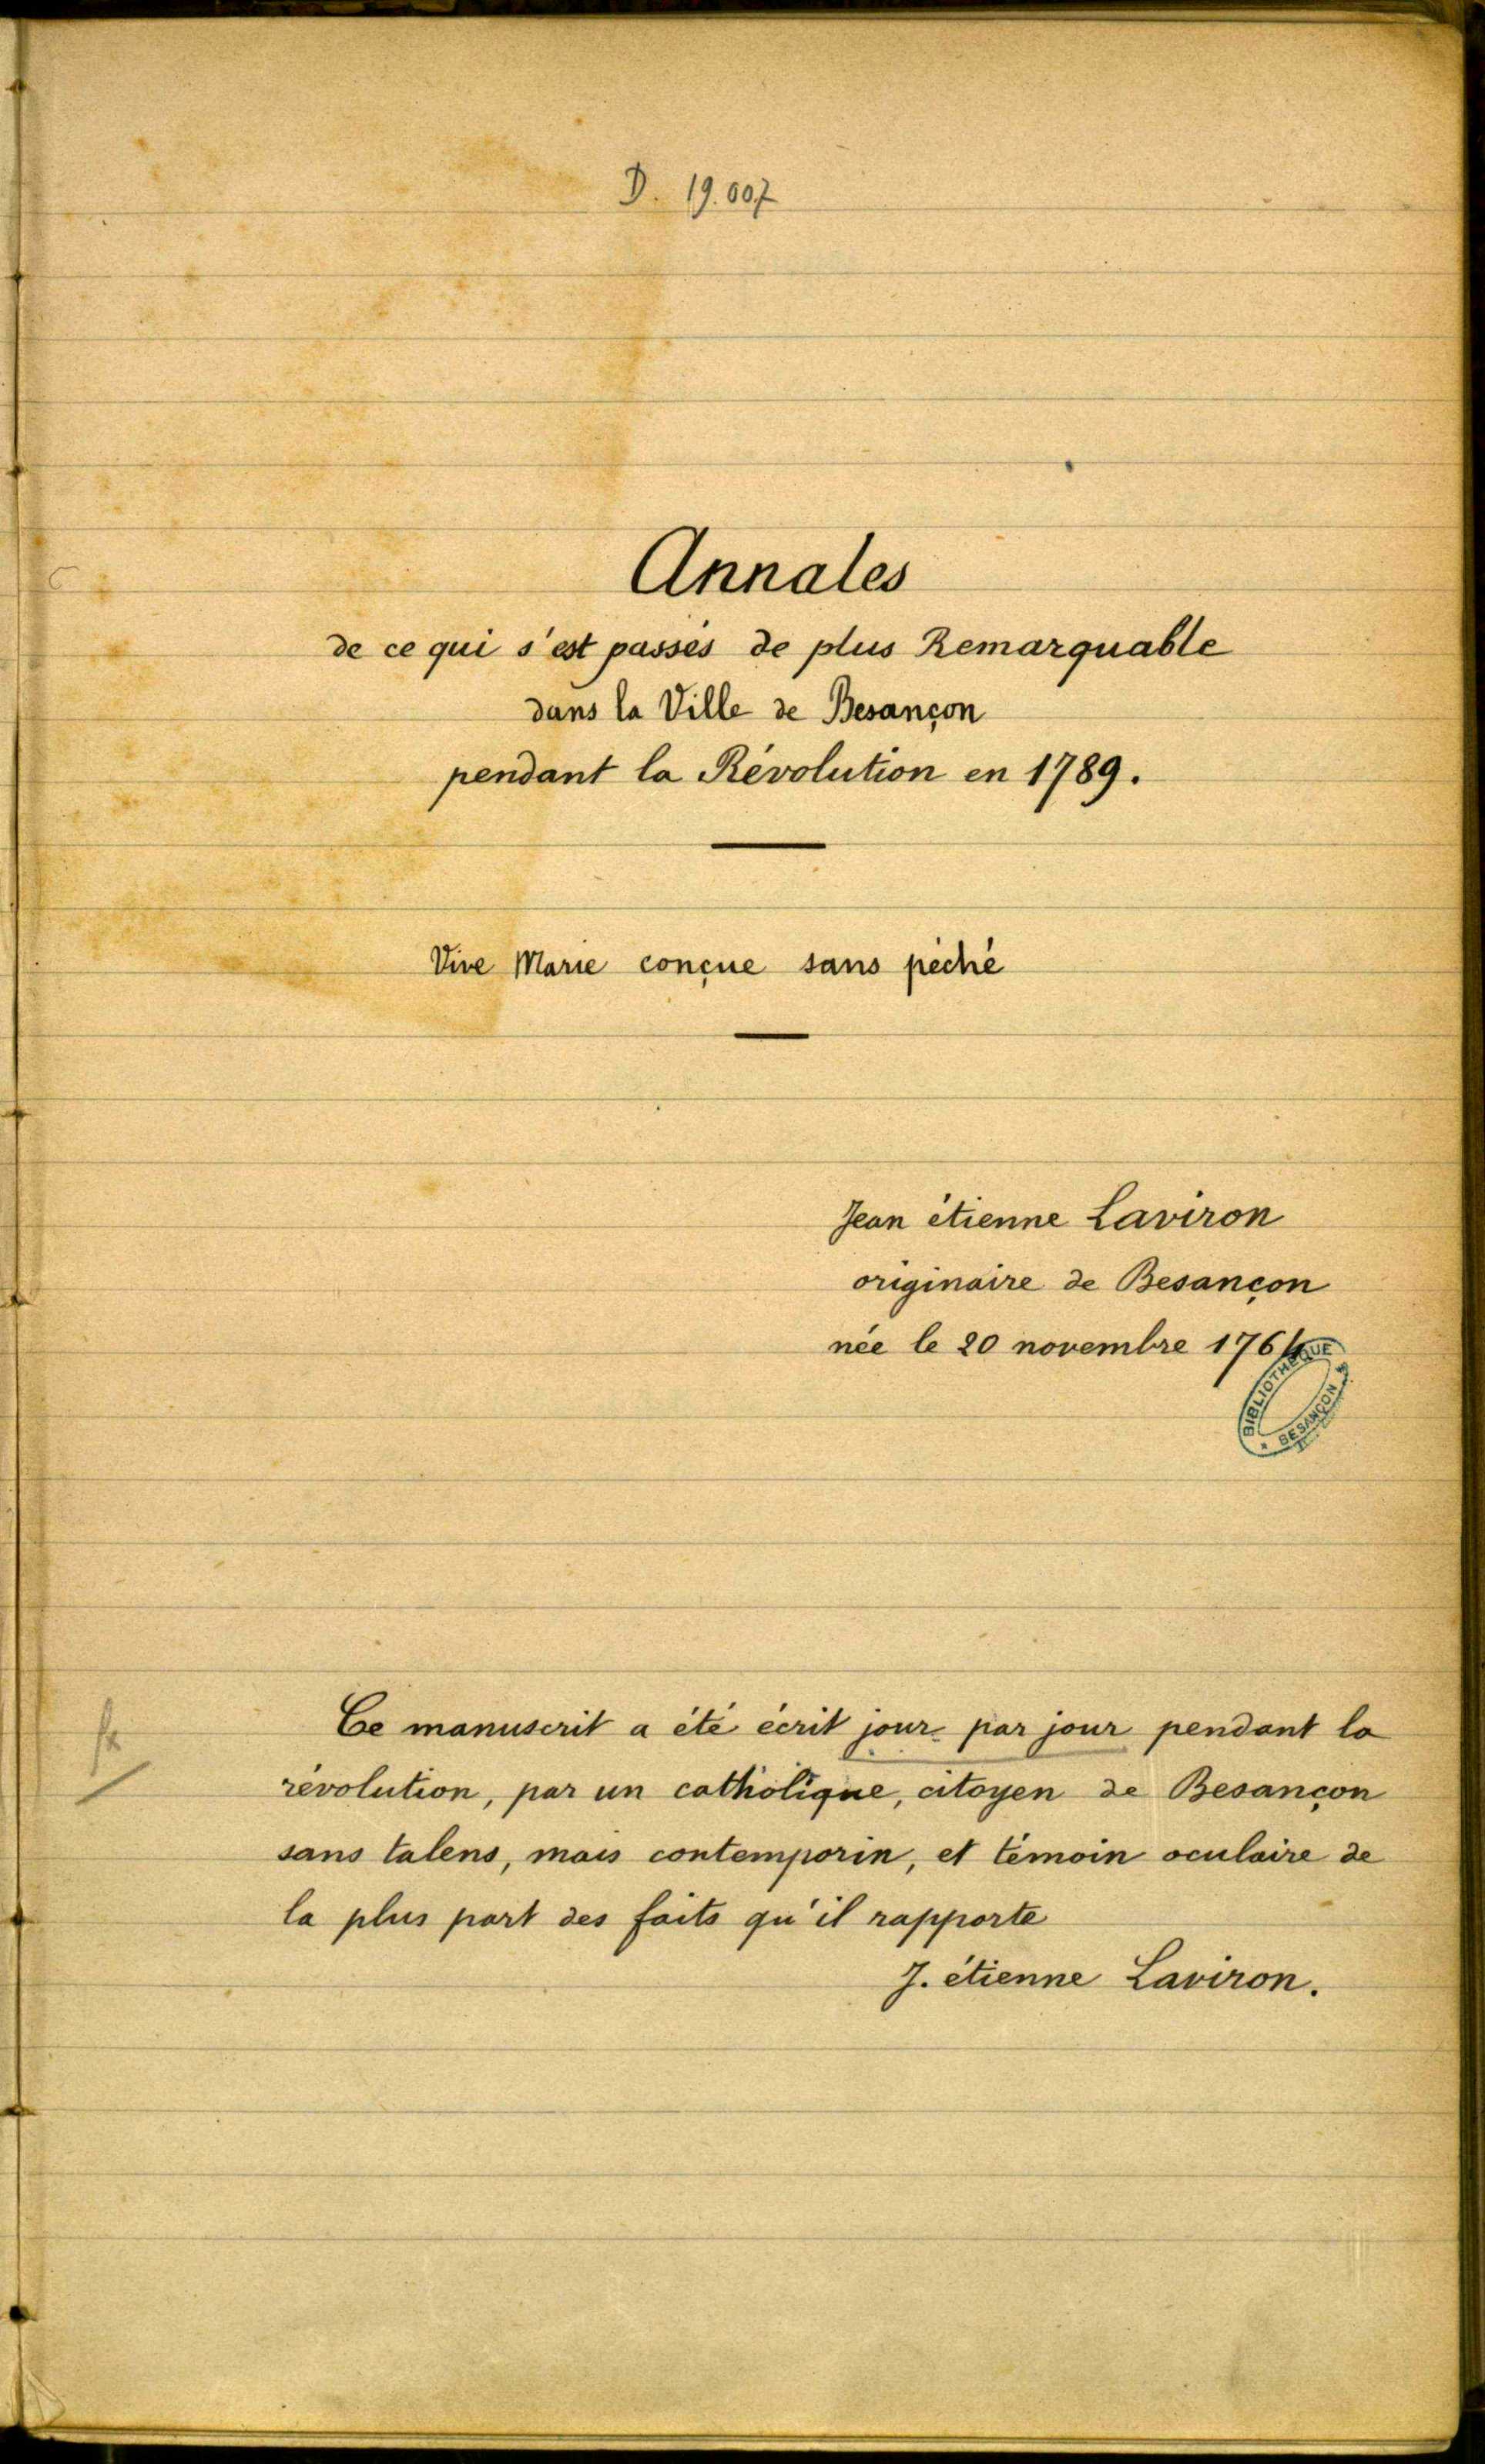 D. 19.007
Annales
de ce qui s'est passés de plus Remarquable
dans la Ville de Besançon
pendant la Révolution en 1789.
Vive Marie conçue sans péché
Jean étienne Laviron
originaire de Besançon
née le 20 novembre 1764
BIBLIOTHEQUE
* BESANÇON *
Ce manuscrit a été écrit jour par jour pendant la
révolution, par un catholique, citoyen de Besançon
sans talens, mais contemporin, et témoin oculaire de
la plus part des faits qu'il rapporte
J. étienne Laviron.